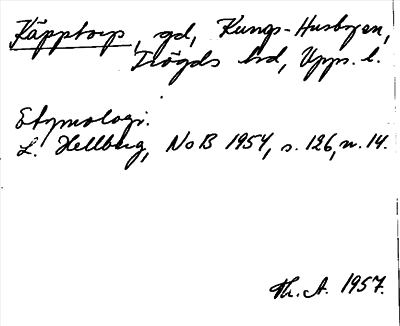 Käpptorp, gd, Kungs-Husbyen,
Trögds hd, Upps. l.
Etymologi.
L. Hellberg, NoB 1954, s. 126, n. 14.
Th. A. 1957.